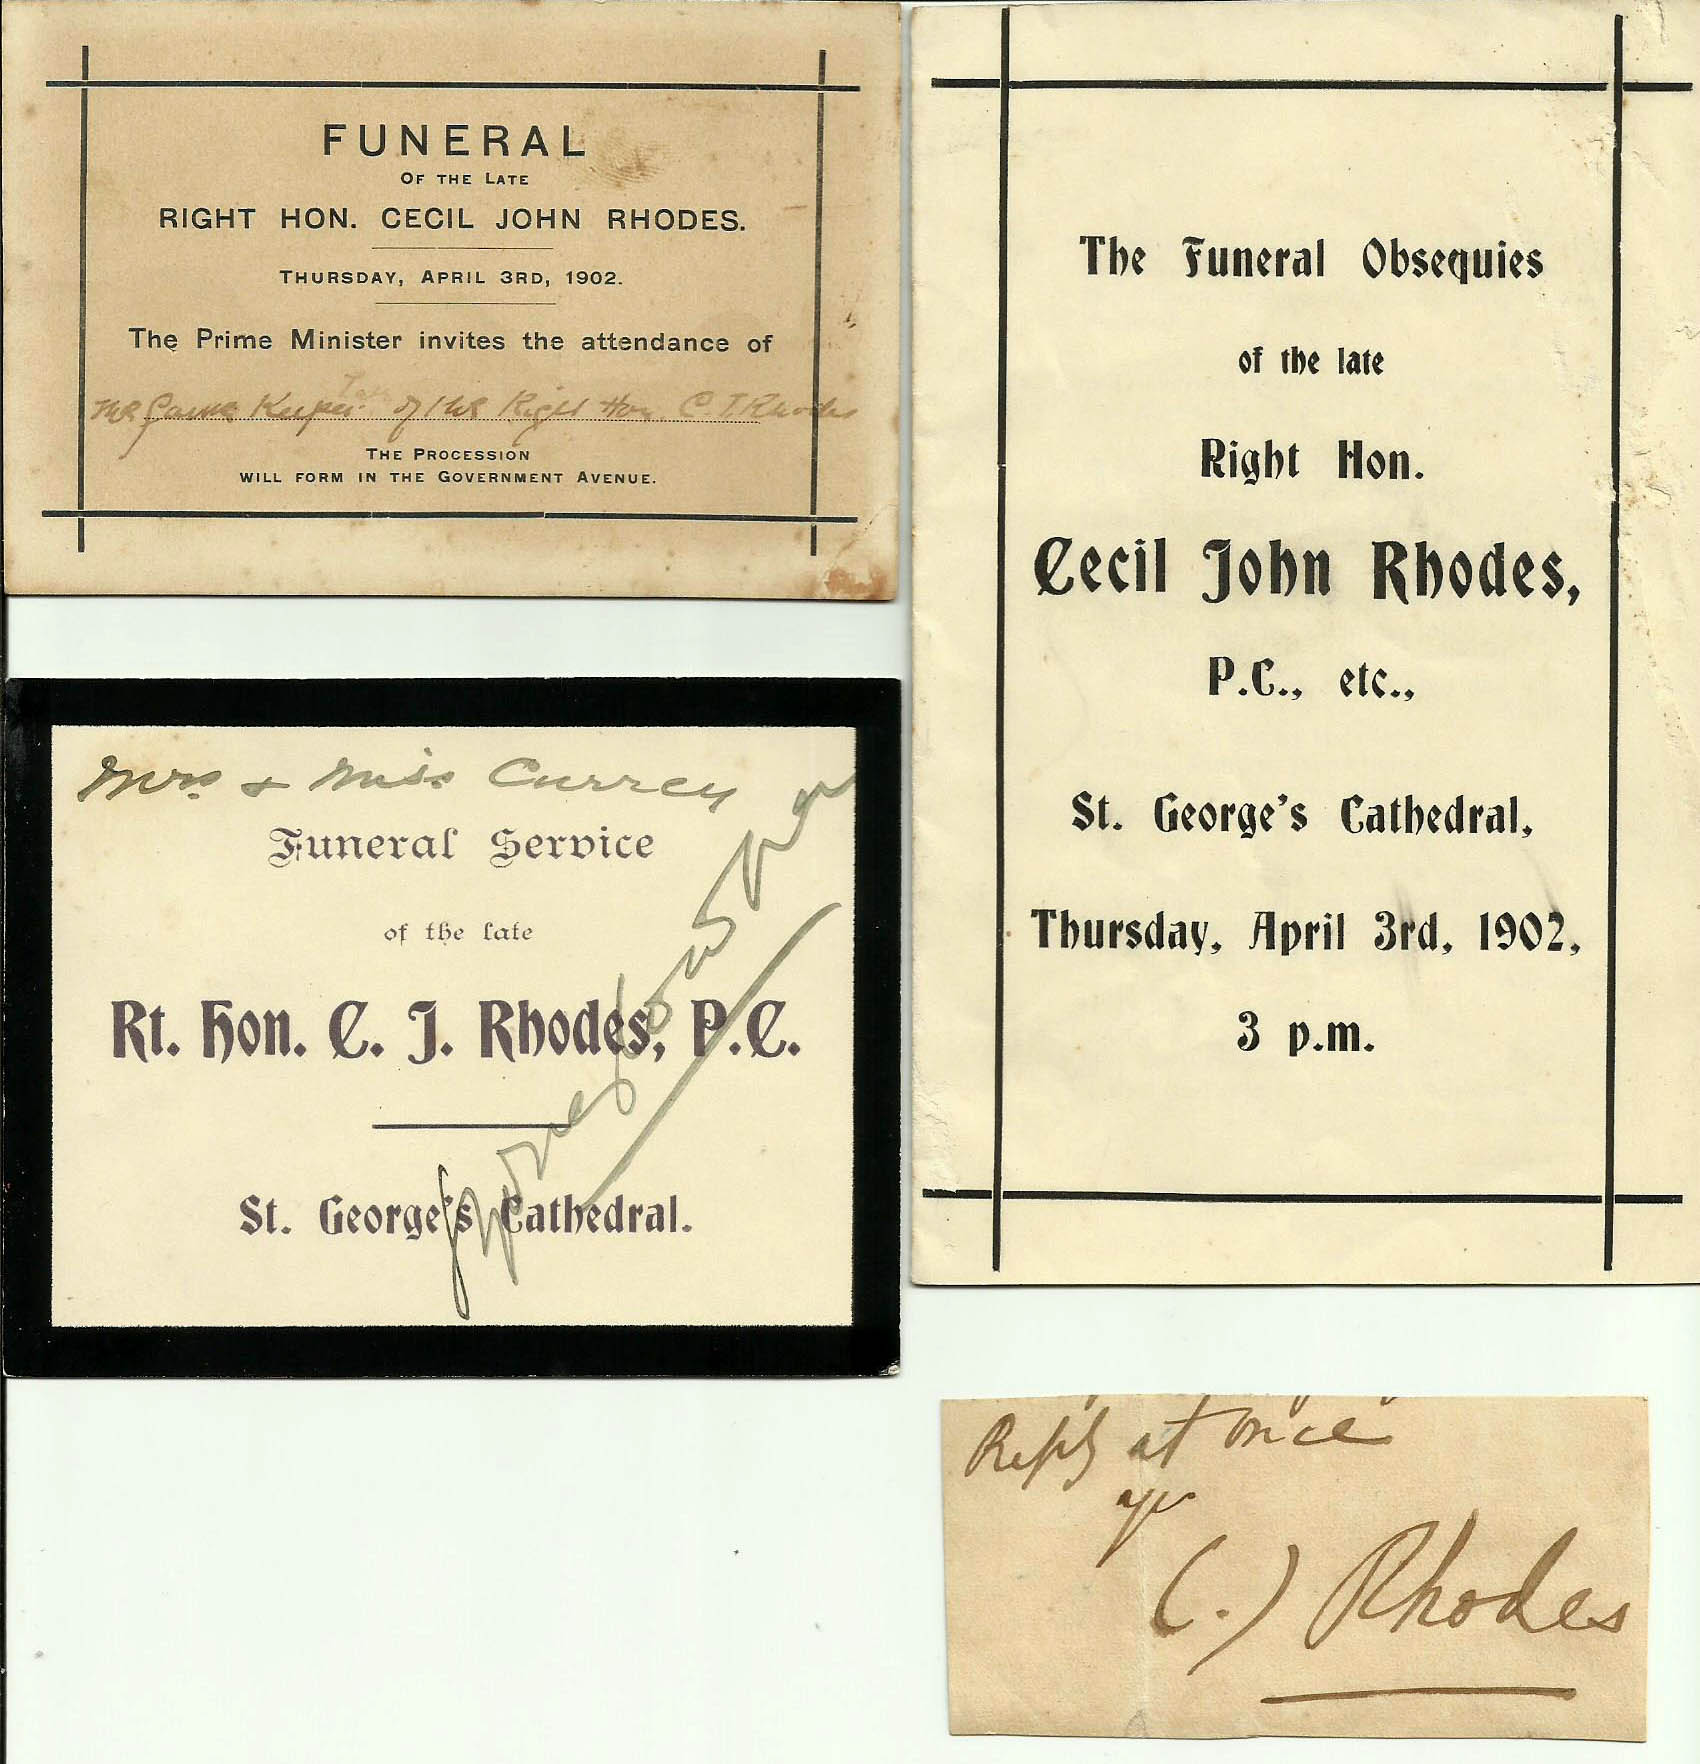 FUNERAL
OF THE LATE
RIGHT HON. CECIL JOHN RHODES.
THURSDAY, APRIL 3RD, 1902.
The Prime Minister invites the attendance of
The Game Keeper of the Right Hon. C. J. Rhodes
THE PROCESSION
WILL FORM IN THE GOVERNMENT AVENUE.
Mrs. & Miss Currey
Funeral Service
of the late
Rt. Hon. C. J. Rhodes, P.C.
St. George's Cathedral.
The Funeral Obsequies
of the late
Right Hon.
Cecil John Rhodes,
P.C., etc.,
St. George's Cathedral,
Thursday, April 3rd, 1902,
3 p.m.
Reply at once
C. J. Rhodes